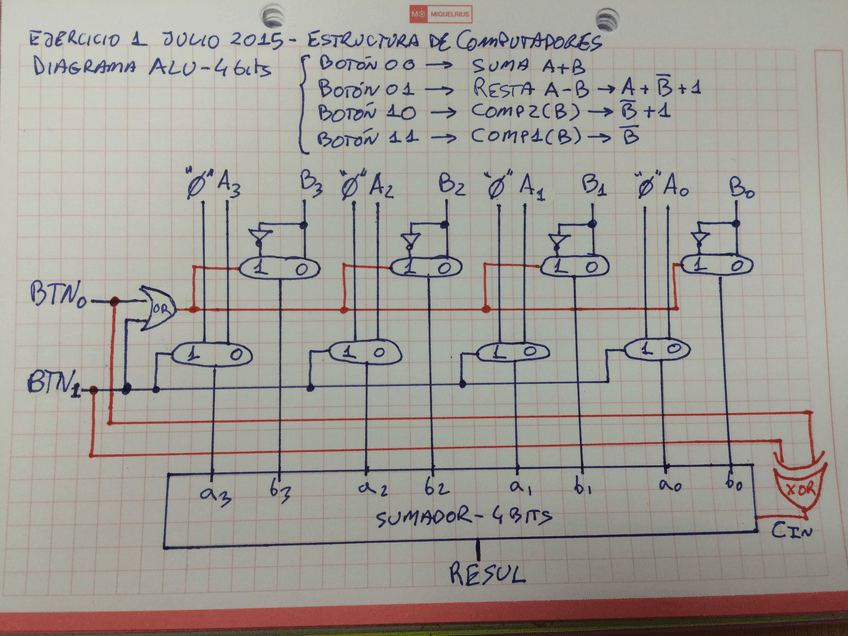 M MIQUELRIUS
EJERCICIO 1 JULIO 2015 - ESTRUCTURA DE COMPUTADORES
DIAGRAMA ALU-4bits
BOTÓN 00 → SUMA A+B
BOTÓN 01 → RESTA A-B → A + B̅ + 1
BOTÓN 10 → COMP2(B) → B̅ + 1
BOTÓN 11 → COMP1(B) → B̅
"Ø" A3 B3 "Ø" A2 B2 "Ø" A1 B1 "Ø" A0 B0
1 0 1 0 1 0 1 0
BTN0 OR
1 0 1 0 1 0 1 0
BTN1
a3 b3 a2 b2 a1 b1 a0 b0 XOR
SUMADOR-4BITS
CIN
RESUL